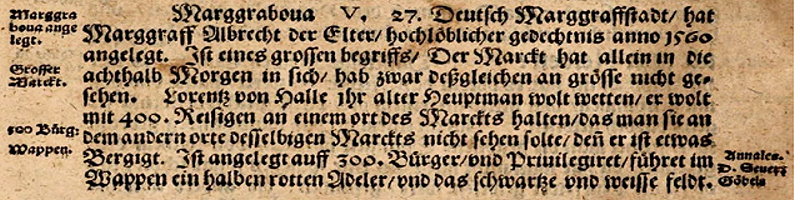 Marggraboua V. 27. Deutsch Marggraffstadt/ hat
Marggra
boua ange
legt.
Marggraff Albrecht der Elter/ hochlöblicher gedechtnis anno 1560
angelegt. Ist eines grossen begriffs/ Der Marckt hat allein in die
Grosser
Marckt.
achthalb Morgen in sich/ hab zwar deßgleichen an grösse nicht ge-
sehen. Lorentz von Halle Ihr alter Heuptman wolt wetten/ er wolt
mit 400. Reisigen an einem ort des Marckts halten/ das man sie an
300 Bürg:
Wappen.
dem andern orte desselbigen Marckts nicht sehen solte/ deñ er ist etwas
Bergigt. Ist angelegt auff 300. Bürger/ vnd Priuilegiret/ führet im
Wappen ein halben rotten Adeler/ vnd das schwartze vnd weisse feldt.
Annales.
D. Seuerz
Göbels